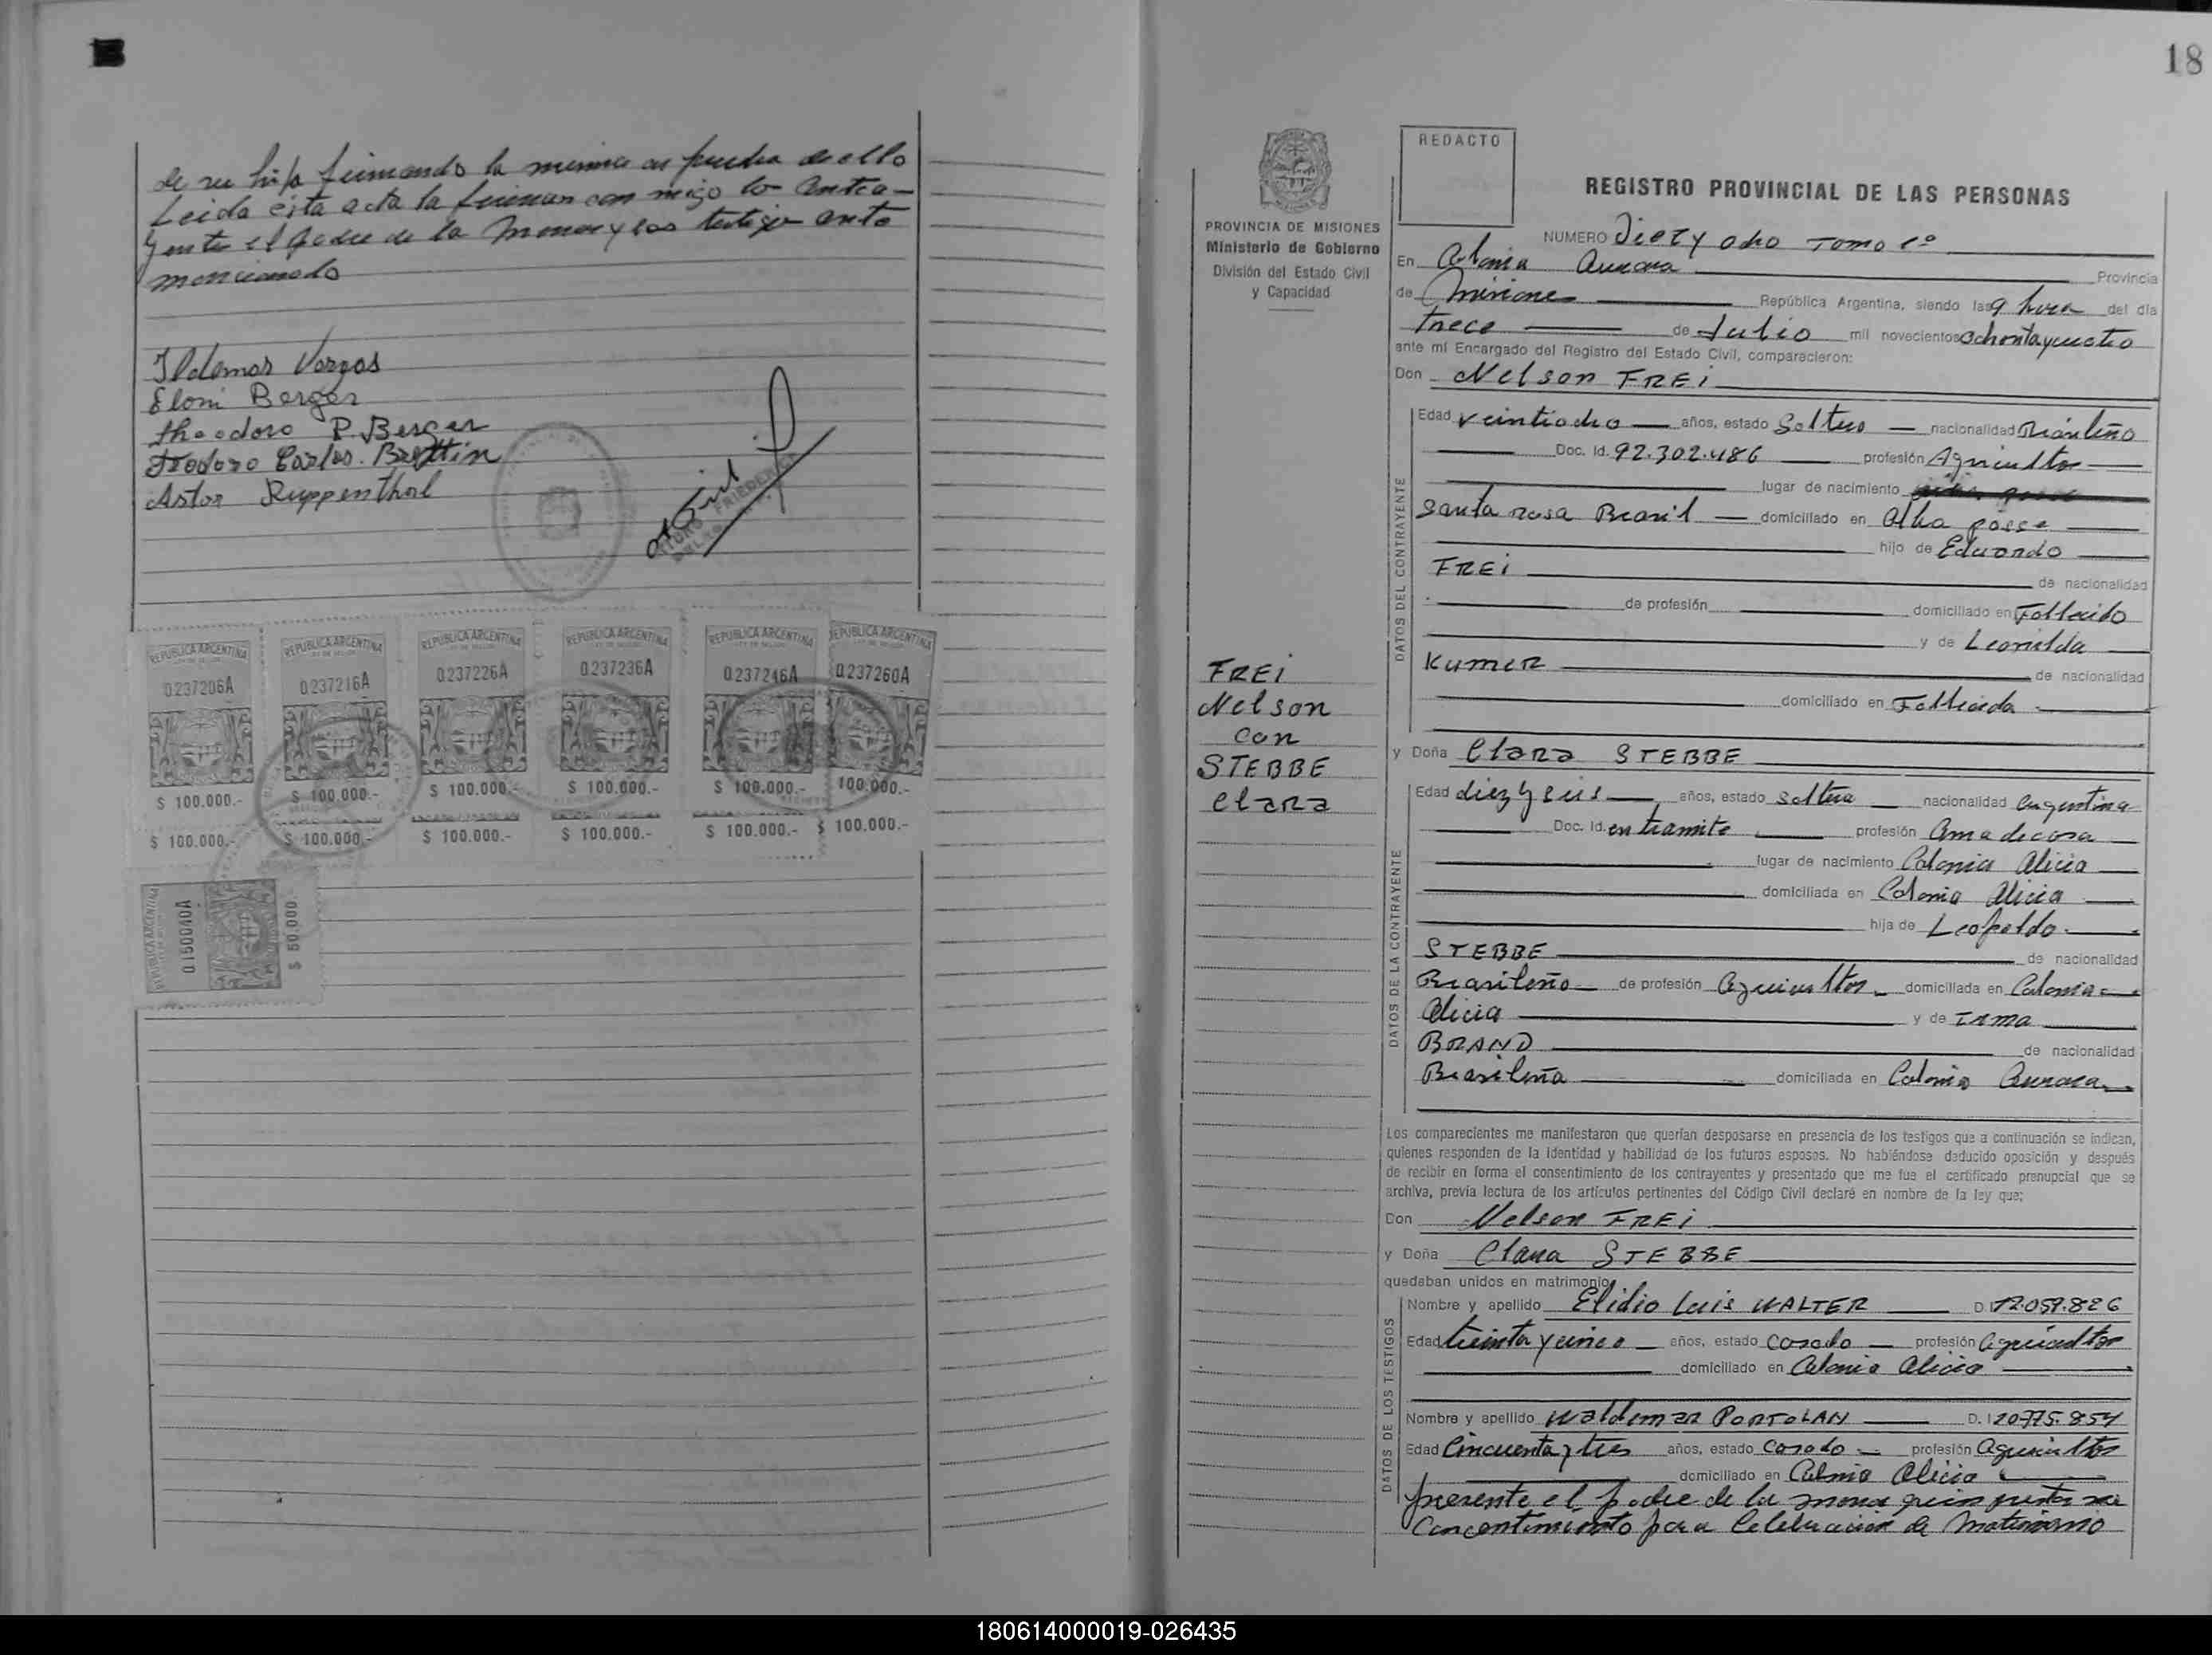 de su hija firmando la misma en prueba de ello
Leida esta acta la firman con migo lo Contra-
yente el padre de la menor y los testigo ante
mencionado
Ildemar Vargas
Eloni Berger
Theodoro P. Berger
Teodoro Carlos. Brettin
Astor Ruppenthal
REPUBLICA ARGENTINA REPUBLICA ARGENTINA REPUBLICA ARGENTINA REPUBLICA ARGENTINA REPUBLICA ARGENTINA REPUBLICA ARGENTINA
0.237206A 0.237216A 0.237226A 0.237236A 0.237246A 0.237260A
$ 100.000.- $ 100.000.- $ 100.000.- $ 100.000.- $ 100.000.- 100.000.-
$ 100.000.- $ 100.000.- $ 100.000.- $ 100.000.- $ 100.000.- $ 100.000.-
REPUBLICA ARGENTINA
0.150040A
$ 50.000.-
18
PROVINCIA DE MISIONES
Ministerio de Gobierno
División del Estado Civil
y Capacidad
FREi
Nelson
con
STEBBE
Clara
REDACTO
REGISTRO PROVINCIAL DE LAS PERSONAS
NUMERO Diez y ocho Tomo 1º
En Colonia Aurora Provincia
de Misiones República Argentina, siendo las 9 hora del día
trece de Julio mil novecientos ochenta y cuatro
ante mí Encargado del Registro del Estado Civil, comparecieron:
Don Nelson FREi
DATOS DEL CONTRAYENTE
Edad veintiocho años, estado Soltero nacionalidad Brasileño
Doc. Id. 92.302.486 profesión Agricultor
lugar de nacimiento
Santa rosa Brasil domiciliado en Alba posse
hijo de Eduardo
FREi de nacionalidad
de profesión domiciliado en Fallecido
y de Leonilda
Kumer de nacionalidad
domiciliado en Fallecida
y Doña Clara STEBBE
DATOS DE LA CONTRAYENTE
Edad diez y seis años, estado soltera nacionalidad Argentina
Doc. Id. en tramite profesión Ama de casa
lugar de nacimiento Colonia Alicia
domiciliada en Colonia Alicia
hija de Leopoldo
STEBBE de nacionalidad
Brasileño de profesión Agricultor domiciliada en Colonia
Alicia y de Irma
BRAND de nacionalidad
Brasileña domiciliada en Colonia Aurora
Los comparecientes me manifestaron que querían desposarse en presencia de los testigos que a continuación se indican,
quienes responden de la identidad y habilidad de los futuros esposos. No habiéndose deducido oposición y después
de recibir en forma el consentimiento de los contrayentes y presentado que me fue el certificado prenupcial que se
archiva, previa lectura de los artículos pertinentes del Código Civil declaré en nombre de la ley que;
Don Nelson FREi
y Doña Clara STEBBE
quedaban unidos en matrimonio
DATOS DE LOS TESTIGOS
Nombre y apellido Elidio Luis WALTER D.I 12.059.826
Edad treinta y cinco años, estado casado profesión agricultor
domiciliado en Colonia Alicia
Nombre y apellido Waldemar PORTOLAN D. I 20.775.854
Edad Cincuenta y tres años, estado casado profesión Agricultor
domiciliado en Colonia Alicia
presente el padre de la menor quien presta su
Concentimiento para Celebración de Matrimonio
180614000019-026435